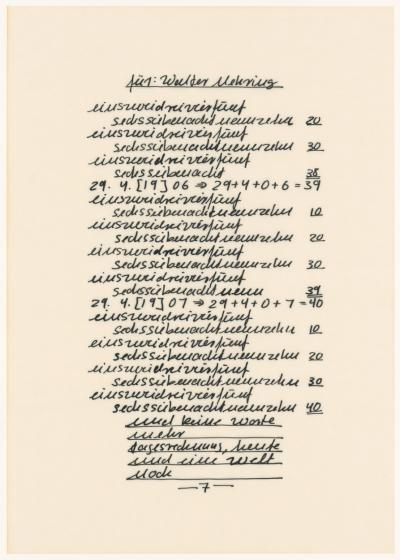 für: Walter Mehring
einszweidreivierfünf
sechssiebenachtneunzehn 20
einszweidreivierfünf
sechssiebenachtneunzehn 30
einszweidreivierfünf
sechssiebenacht 38
29. 4. [19] 06 ⇒ 29+4+0+6 = 39
einszweidreivierfünf
sechssiebenachtneunzehn 10
einszweidreivierfünf
sechssiebenachtneunzehn 20
einszweidreivierfünf
sechssiebenachtneunzehn 30
einszweidreivierfünf
sechssiebenachtneun 39
29. 4. [19] 07 ⇒ 29+4+0+7 = 40
einszweidreivierfünf
sechssiebenachtneunzehn 10
einszweidreivierfünf
sechssiebenachtneunzehn 20
einszweidreivierfünf
sechssiebenachtneunzehn 30
einszweidreivierfünf
sechssiebenachtneunzehn 40
und keine worte
mehr
tagesrechnung, heute
und eine welt
noch
—7—